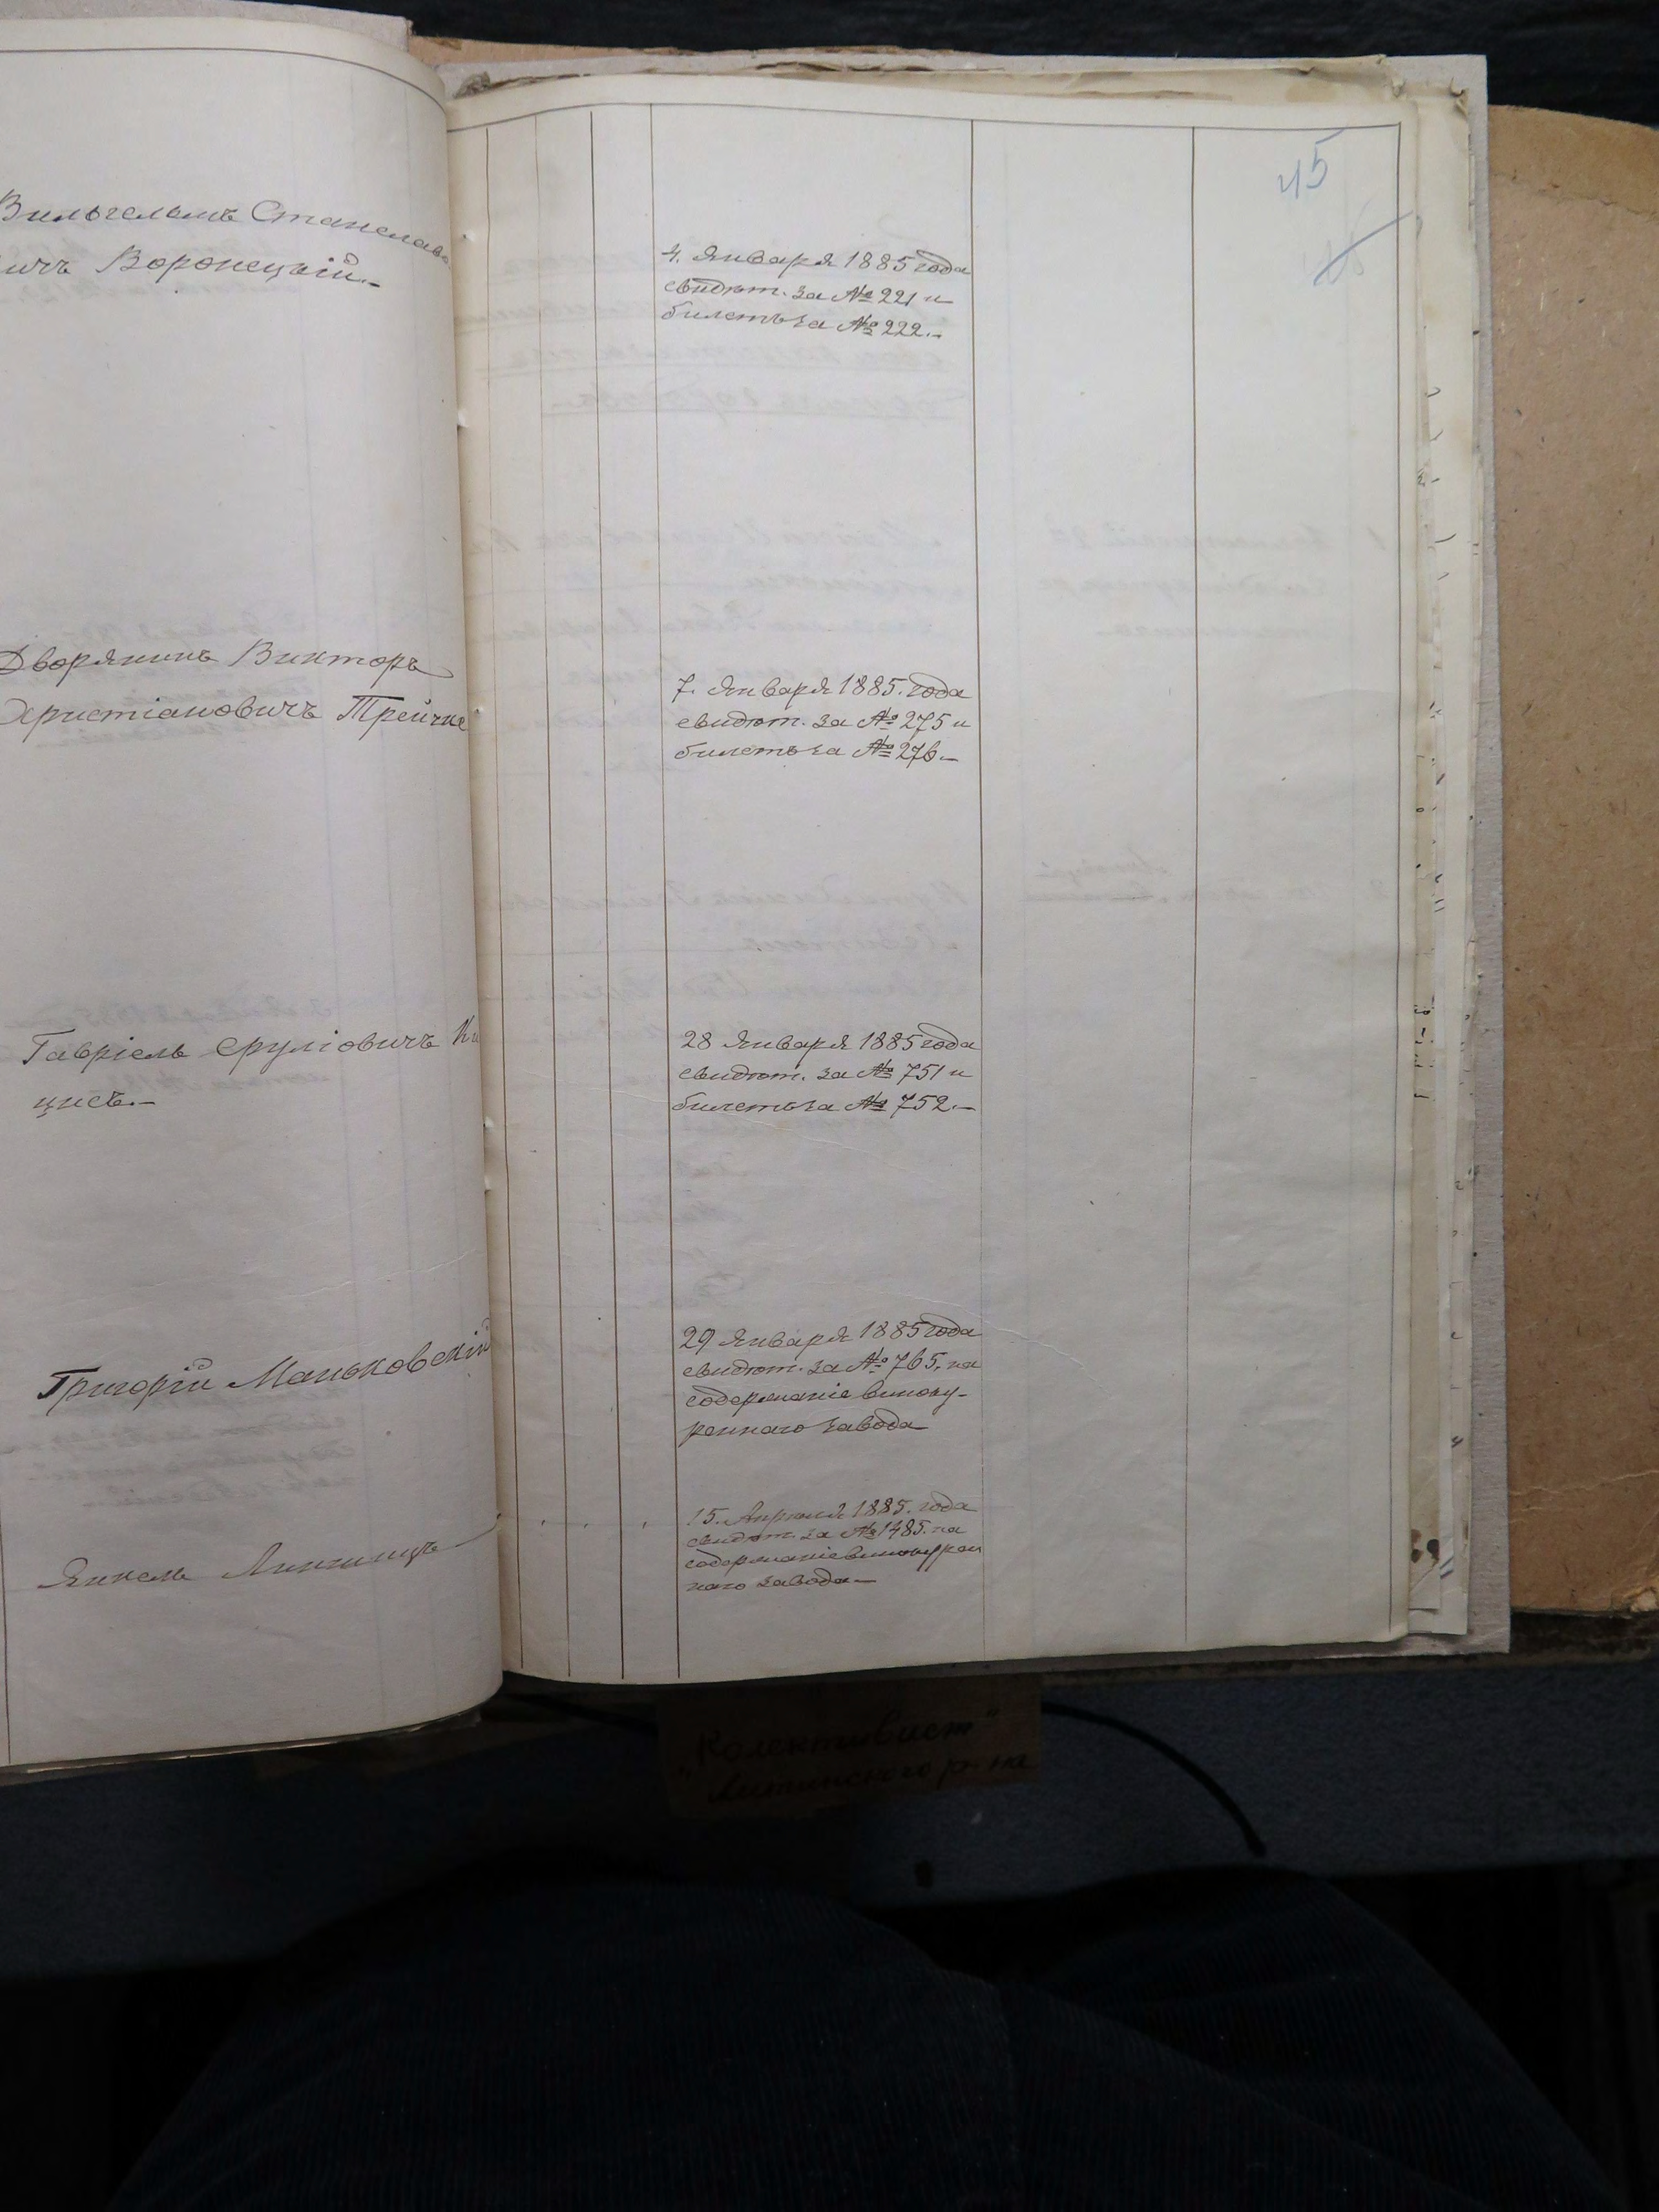 45
Вильгельмъ Станиславо-
ичъ Воронецкій.-
4. Января 1885 года
свидѣт. за № 221 и
билетъ за № 222.-
Дворянинъ Викторъ
Христіановичъ Трейчке
7. Января 1885. года
свидѣт. за № 275 и
билетъ за № 276.-
Гавріель Сруліовичъ Ки
цисъ.-
28 Января 1885 года
свидѣт. за № 751 и
билетъ за № 752.-
Григорій Маньковскій
29 Января 1885 года
свидѣт. за № 765. на
содержаніе виноку-
реннаго завода
Янкель
15. Апрѣля 1885. года
свидѣт. за № 1485. на
содержаніе винокурен
наго завода.-
„Колективист"
Литинского р-на